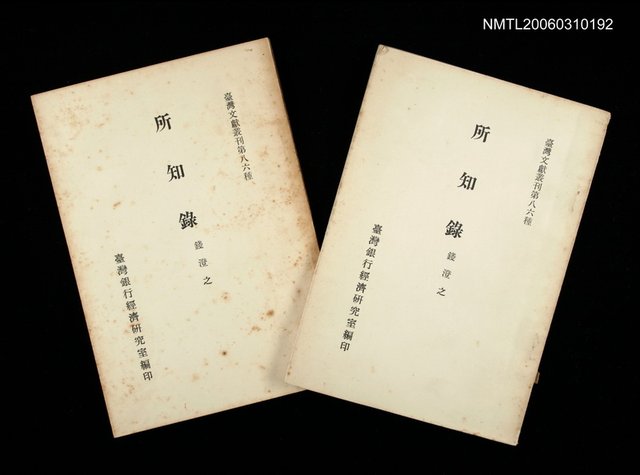 NMTL20060310192
臺灣文獻叢刊第八六種
所知錄
錢澄之
臺灣銀行經濟研究室編印
臺灣文獻叢刊第八六種
所知錄
錢澄之
臺灣銀行經濟研究室編印